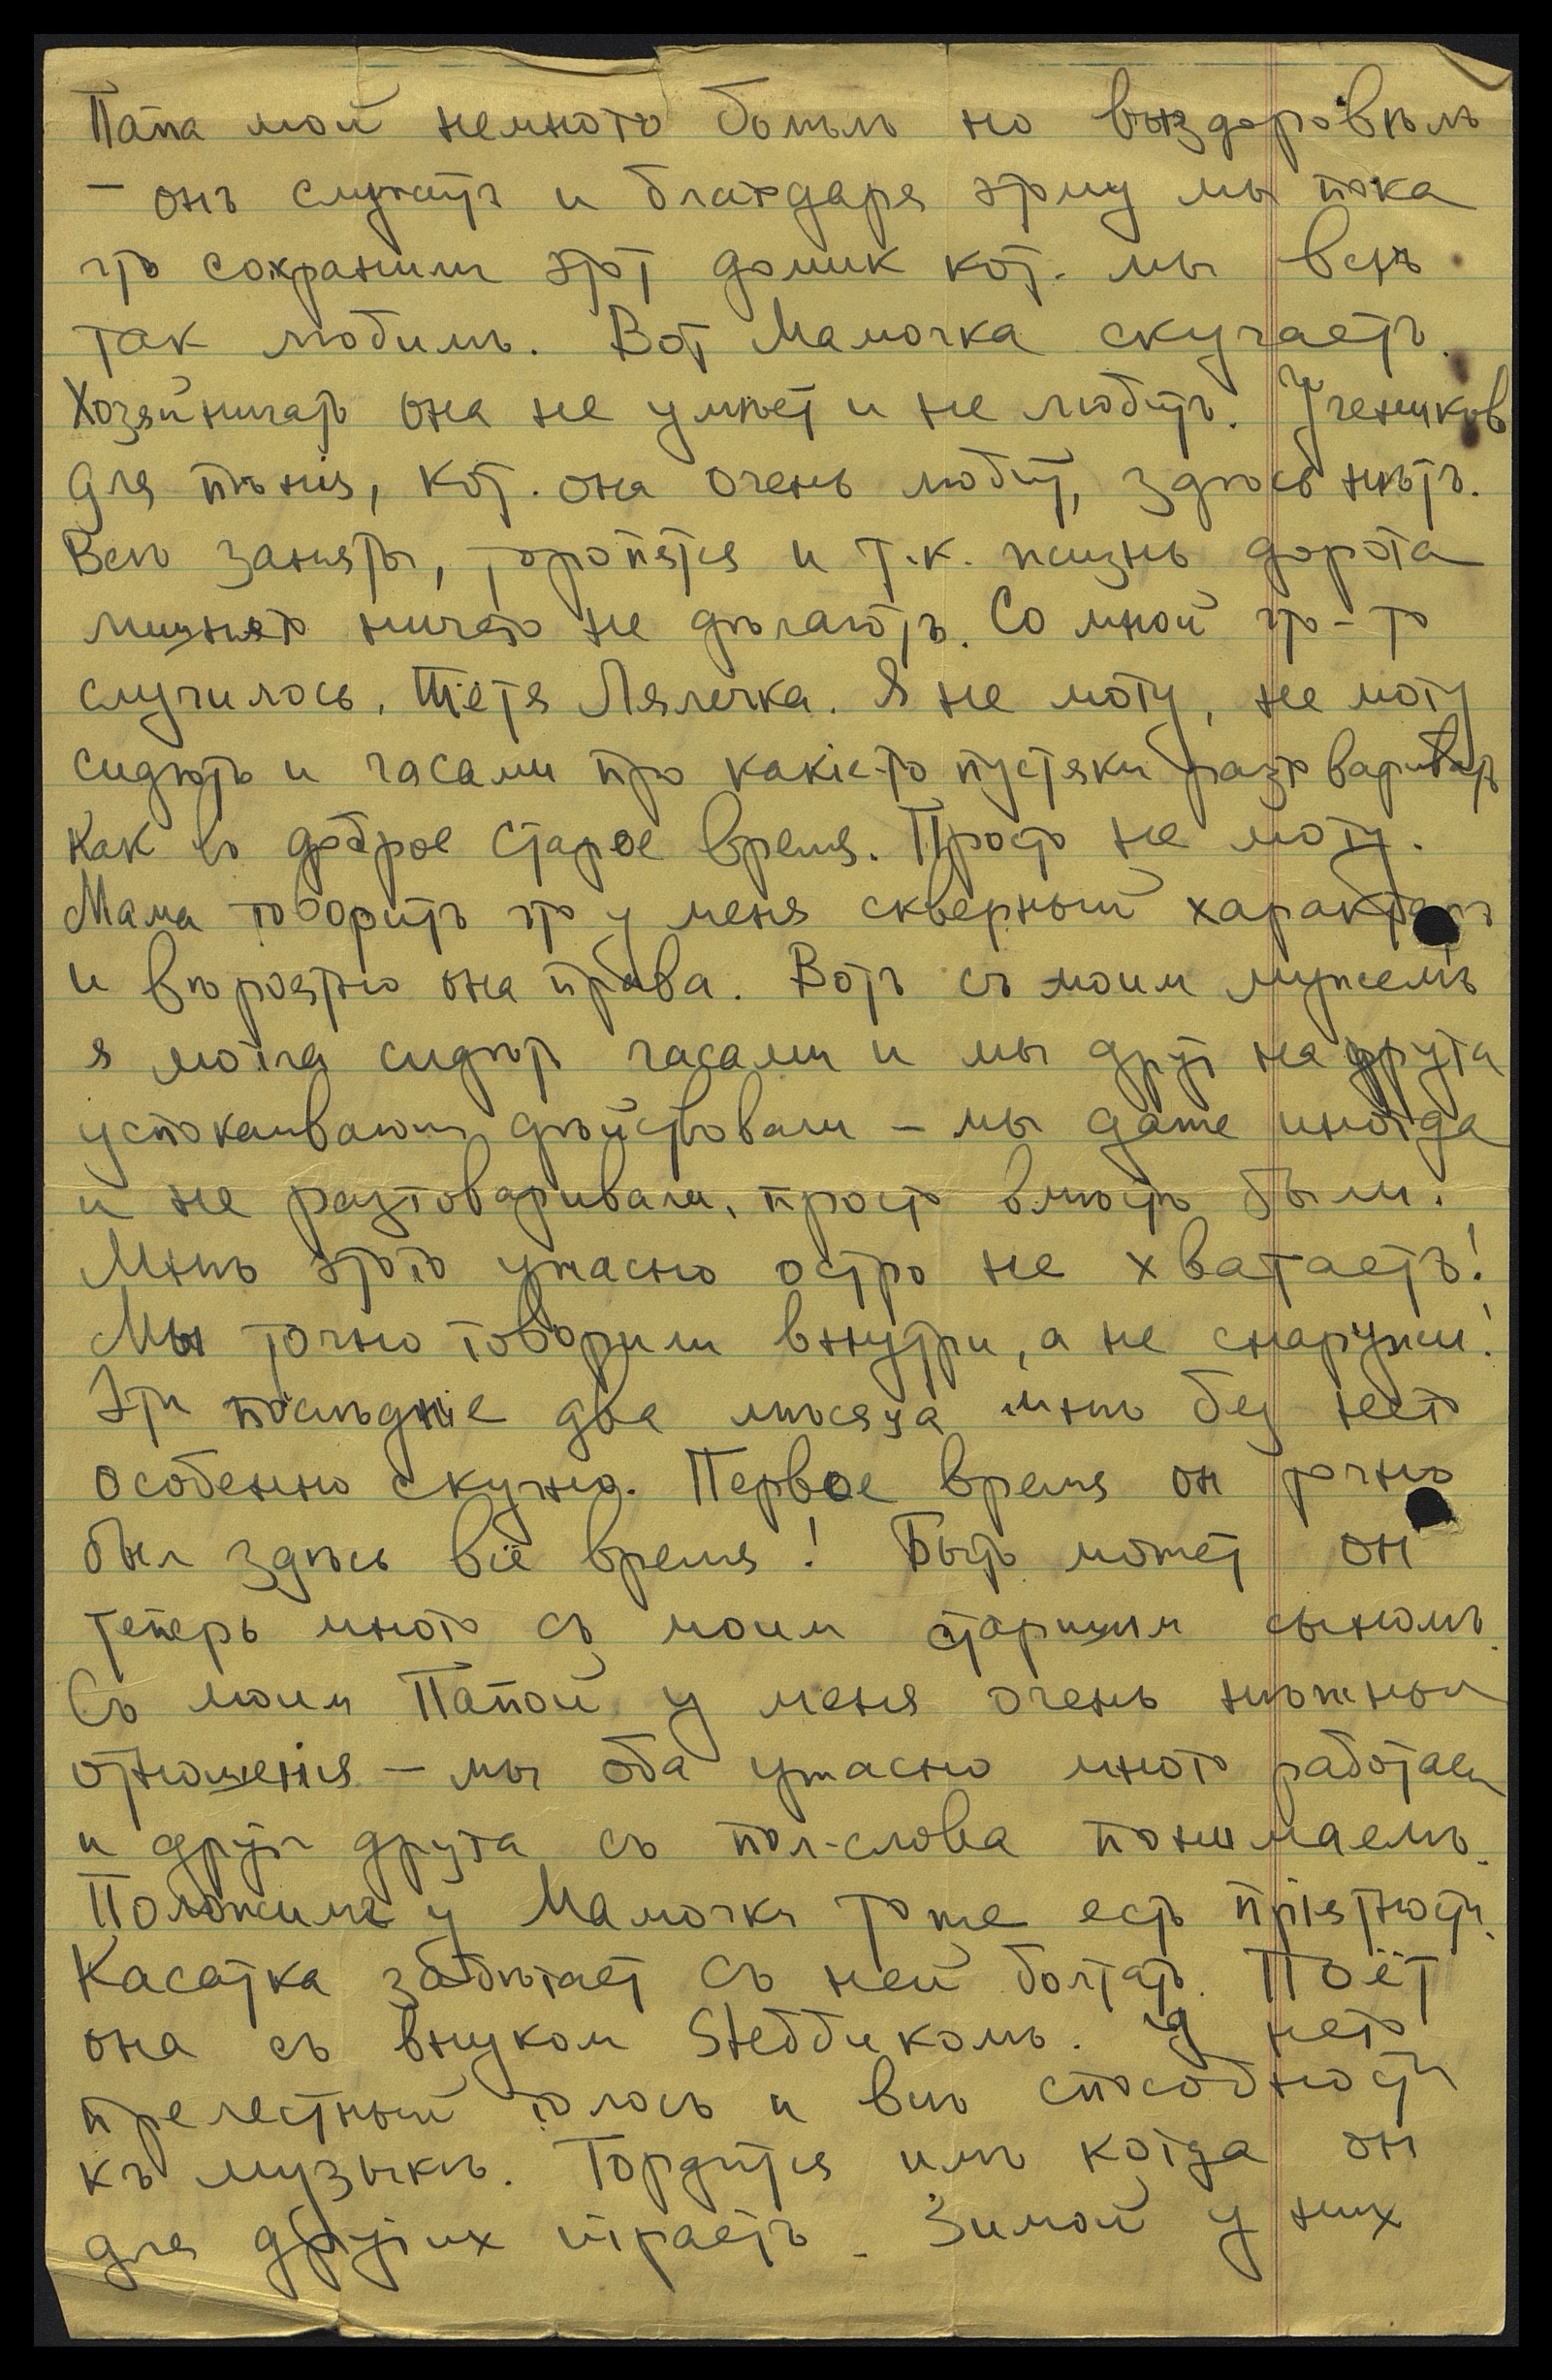 Папа мой немного болѣлъ но выздоровѣлъ
— онъ служитъ и благодаря этому мы пока
что сохранили этот домик кот. мы всѣ
так любимъ. Вот Мамочка скучаетъ.
Хозяйничать она не умѣет и не любитъ. Учеников
для пѣнія, кот. она очень любит, здѣсь нѣтъ.
Всѣ заняты, торопятся и т.к. жизнь дорога
лишняго ничего не дѣлаютъ. Со мной что-то
случилось, тётя Лялечка. Я не могу, не могу
сидѣть и часами про какіе-то пустяки разговаривать
как въ доброе старое время. Просто не могу.
Мама говоритъ что у меня скверный характеръ
и вѣроятно она права. Вотъ съ моим мужемъ
я могла сидѣть часами и мы друг на друга
успокаивающе дѣйствовали — мы даже иногда
и не разговаривали, просто вмѣстѣ были.
Мнѣ этого ужасно остро не хватаетъ!
Мы точно говорили внутри, а не снаружи!
Эти послѣдніе два мѣсяца мнѣ без него
особенно скучно. Первое время он точно
был здѣсь всё время! Быть может он
теперь много съ моим старшим сыномъ.
Съ моим Папой у меня очень нѣжныя
отношенія — мы оба ужасно много работаем
и друг друга съ пол-слова понимаемъ.
Положимъ у Мамочки тоже есть пріятности.
Касатка забѣгает съ ней болтать. Поёт
она съ внуком Стеббикомъ. У него
прелестный голосъ и всѣ способности
къ музыкѣ. Гордится имъ когда он
для других играетъ. Зимой у них